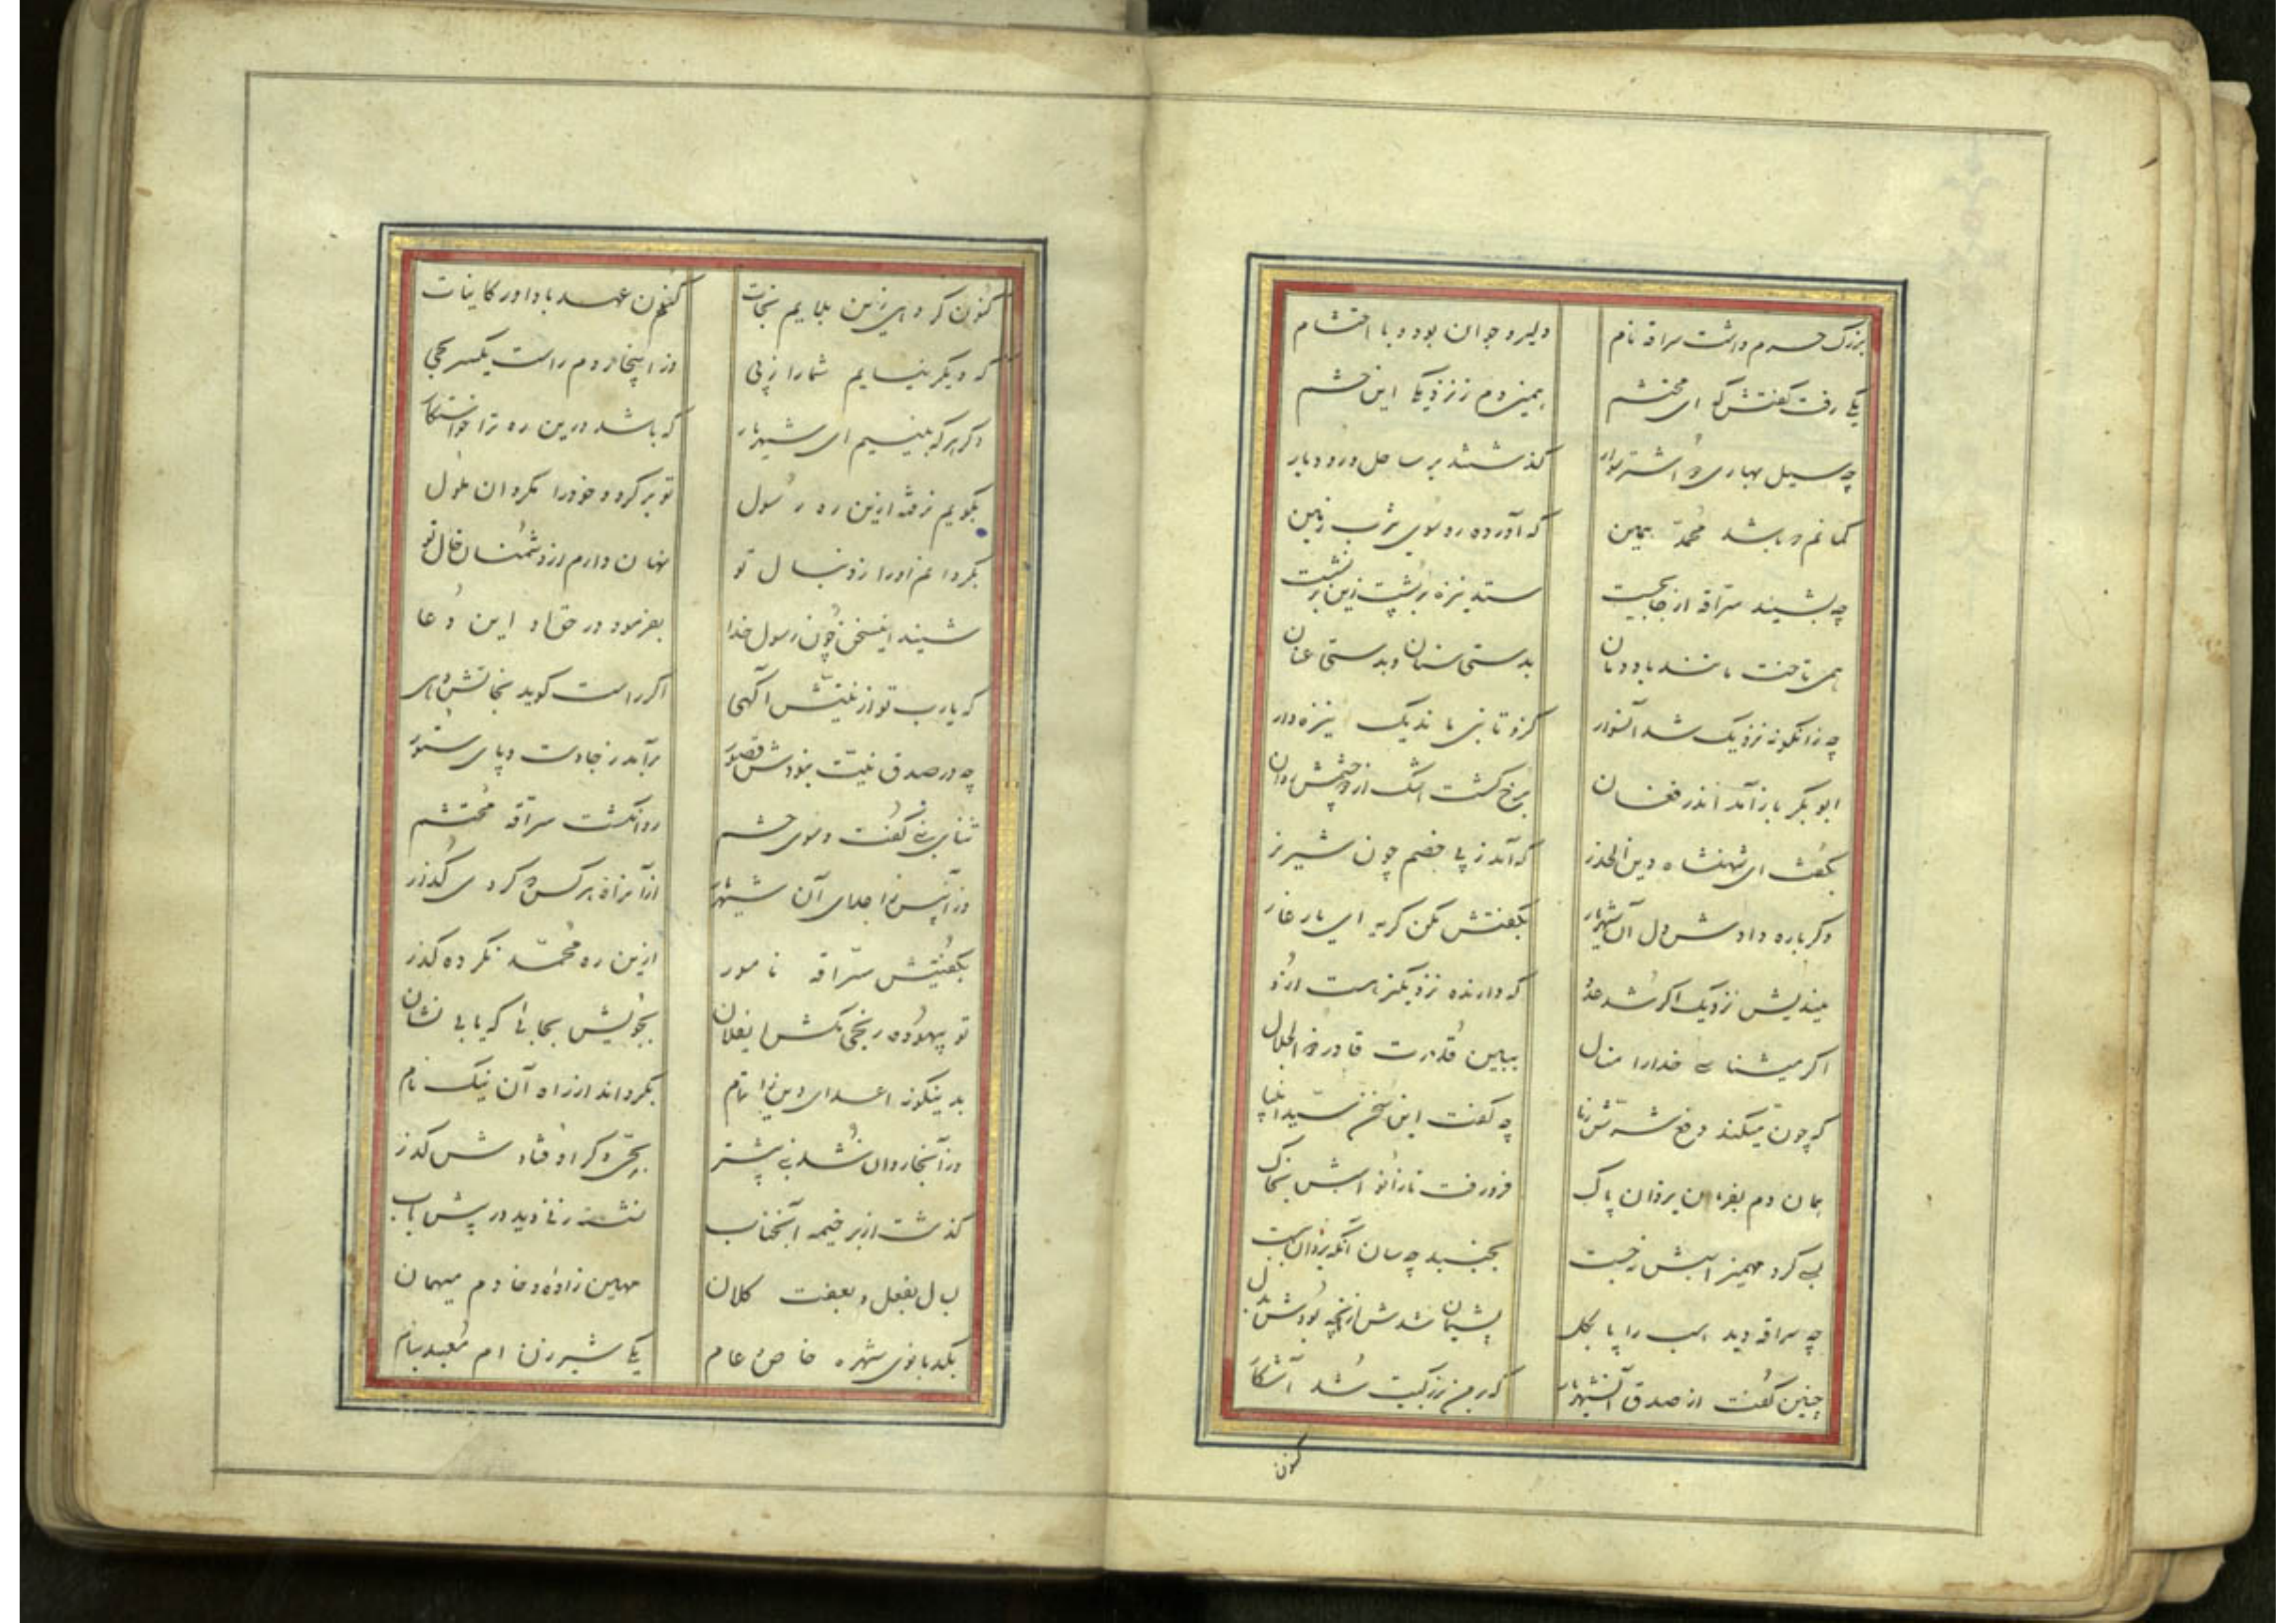 بزرگ حرم داشت سراقه نام دلیر و جوان بود و با احتشام
یکی رفت گفتش که ای محتشم همین دم ز نزدیک این حشم
چه سیل بهاری دو اشتر سوار گذشتند بر ساحل رودبار
گمانم که باشد محمد یمین که آورده رو سوی یثرب زمین
چه بشنید سراقه از جا بجست ستد نیزه بر پشت زین برنشست
همی تاخت مانند باد دمان بدستی سنان و بدستی عنان
چه زانگونه نزدیک شد آنسوار کزو تا نبی ماند یک نیزه‌دار
ابوبکر باز آمد اندر فغان برخ گشت اشک از دو چشمش روان
بگفت ای شهنشاه دین الحذر که آمد ز پی خصم چون شیر نر
دگرباره دادش دل آن شهریار بگفتش مکن گریه ای یار غار
میندیش نزدیک اگر شد عدو که دارنده نزدیکتر است ازو
اگر میشناسی خدا را منال ببین قدرت قادر ذوالجلال
که چون میکند دفع شرش ز ما چه گفت این سخن سید انبیا
همان دم بفرمان یزدان پاک فرو رفت تا زانو اسبش بخاک
بسی کرد مهمیز اسبش نجست بجنبد چه سان آنکه یزدان ببست
چه سراقه دید اسب را پا بگل پشیمان شدش زانچه بودش بدل
چنین گفت از صدق آنشهریار که بر من بزرگیت شد آشکار
کنون
کنون گر دهی زین بلایم نجات کنم عهد با داور کاینات
که دیگر نیایم شما را ز پی وز اینجا روم راست یکسر بحی
دگر هر که بینیم ای شهریار که باشد درین ره ترا خواستگار
بگویم نرفته ازین ره رسول تو برگرد و خود را مگردان ملول
بگردانم او را ز دنبال تو نهان دارم از دشمنان حال تو
شنید اینسخن چون رسول خدا بفرمود در حق او این دعا
که یارب تو از نیتش آگهی اگر راست گوید نجاتش دهی
چه در صدق نیت نبودش قصور برآمد ز جا دست و پای ستور
ثنای نبی گفت و سوی حشم روان گشت سراقه محتشم
وز آنپس ز اعدای آن شهریار از آنراه هر کس که کردی گذر
بگفتیش سراقه نامور ازین ره محمد نکرده گذر
تو بیهوده رنجی مکش ایفلان بجویش بجائی که یابی نشان
بدینگونه اعدای دین را تمام بگرداند از راه آن نیک نام
وز آنجا روان شد نبی پیشتر بحی دگر اوفتادش گذر
گذشت از بر خیمه آنجناب نشسته زنی دید در پیش باب
بسال بفعل و بعفت کلان مهین زاده و خادم میهمان
بکدبانوی شهره خاص و عام یکی شیرزن ام معبد بنام